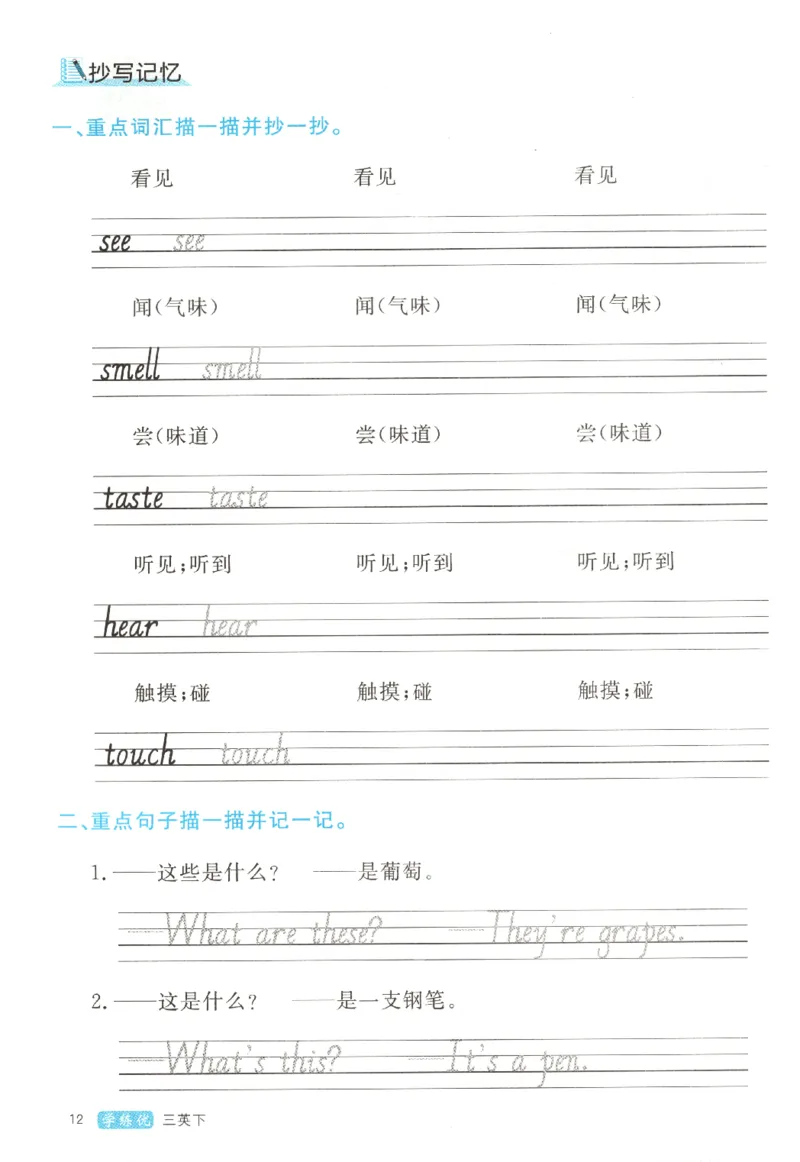 抄写记忆
一、重点词汇描一描并抄一抄。
看见 看见 看见
see see
闻(气味) 闻(气味) 闻(气味)
smell smell
尝(味道) 尝(味道) 尝(味道)
taste taste
听见;听到 听见;听到 听见;听到
hear hear
触摸;碰 触摸;碰 触摸;碰
touch touch
二、重点句子描一描并记一记。
1.——这些是什么? ——是葡萄。
—What are these? —They're grapes.
2.——这是什么? ——是一支钢笔。
—What's this? —It's a pen.
12 学练优 三英下